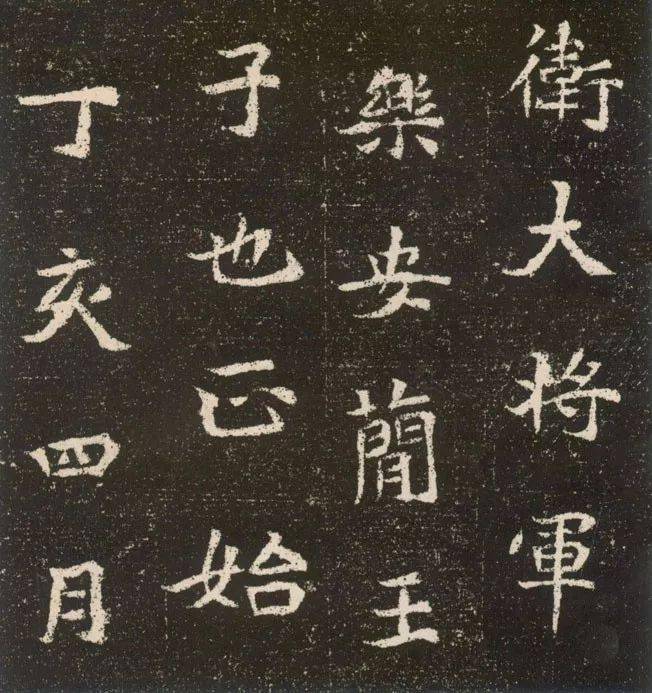 衛大将軍
樂安蕳王
子也正始
丁亥四月